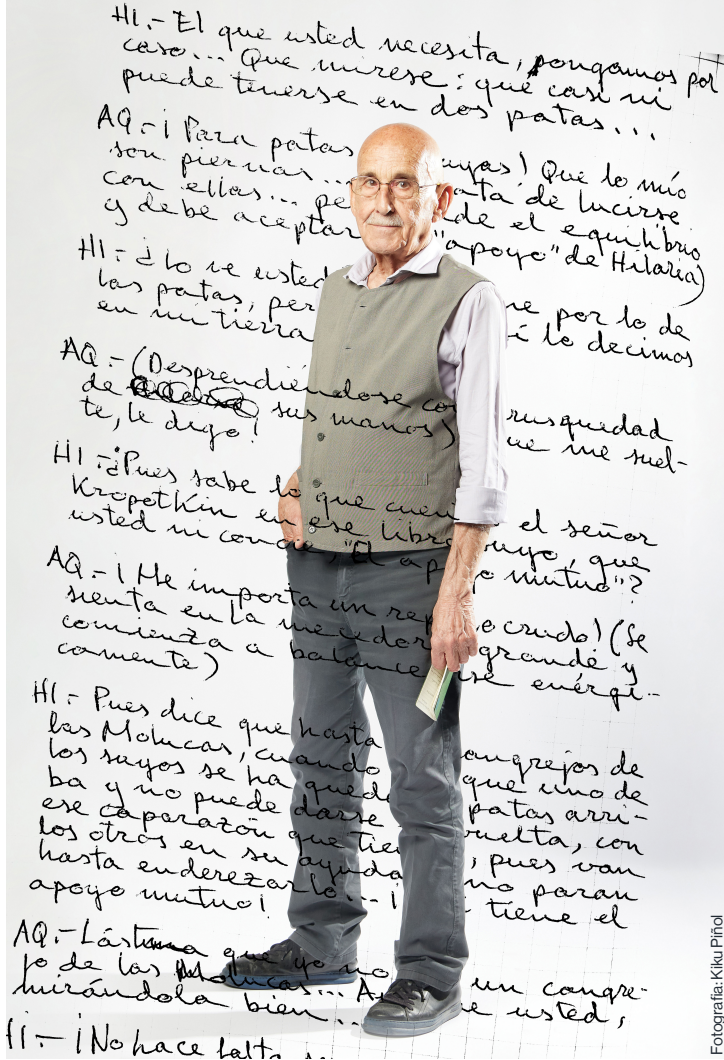 HI.- El que usted necesita, pongamos por
caso... Que mírese: que casi ni
puede tenerse en dos patas...
AQ.- ¡Para patas uyas! Que lo mío
son piernas... ata de lucirse
con ellas... pe de el equilibrio
y debe aceptar "apoyo" de Hilaria)
HI.- ¿Lo ve usted ne por lo de
las patas, per í lo decimos
en mi tierra
AQ.- (Desprendiéndose co rusquedad
de sus manos) ue me suel-
te, le digo!
HI.- ¿Pues sabe lo que cuen el señor
Kropotkin en ese libro suyo, que
usted ni conoce, "El ap o mutuo"?
AQ.- ¡Me importa un rep o crudo! (Se
sienta en la mecedor grande y
comienza a balancearse enérgi-
camente)
HI.- Pues dice que hasta angrejos de
las Molucas, cuando que uno de
los suyos se ha queda patas arri-
ba y no puede darse vuelta, con
ese caparazón que tien , pues van
los otros en su ayuda no paran
hasta enderezarlo... ¡ tiene el
apoyo mutuo!
AQ.- Lástima que yo no un cangre-
jo de las Molucas... A ue usted,
mirándola bien...
HI.- ¡No hace falta
Fotografía: Kiku Piñol